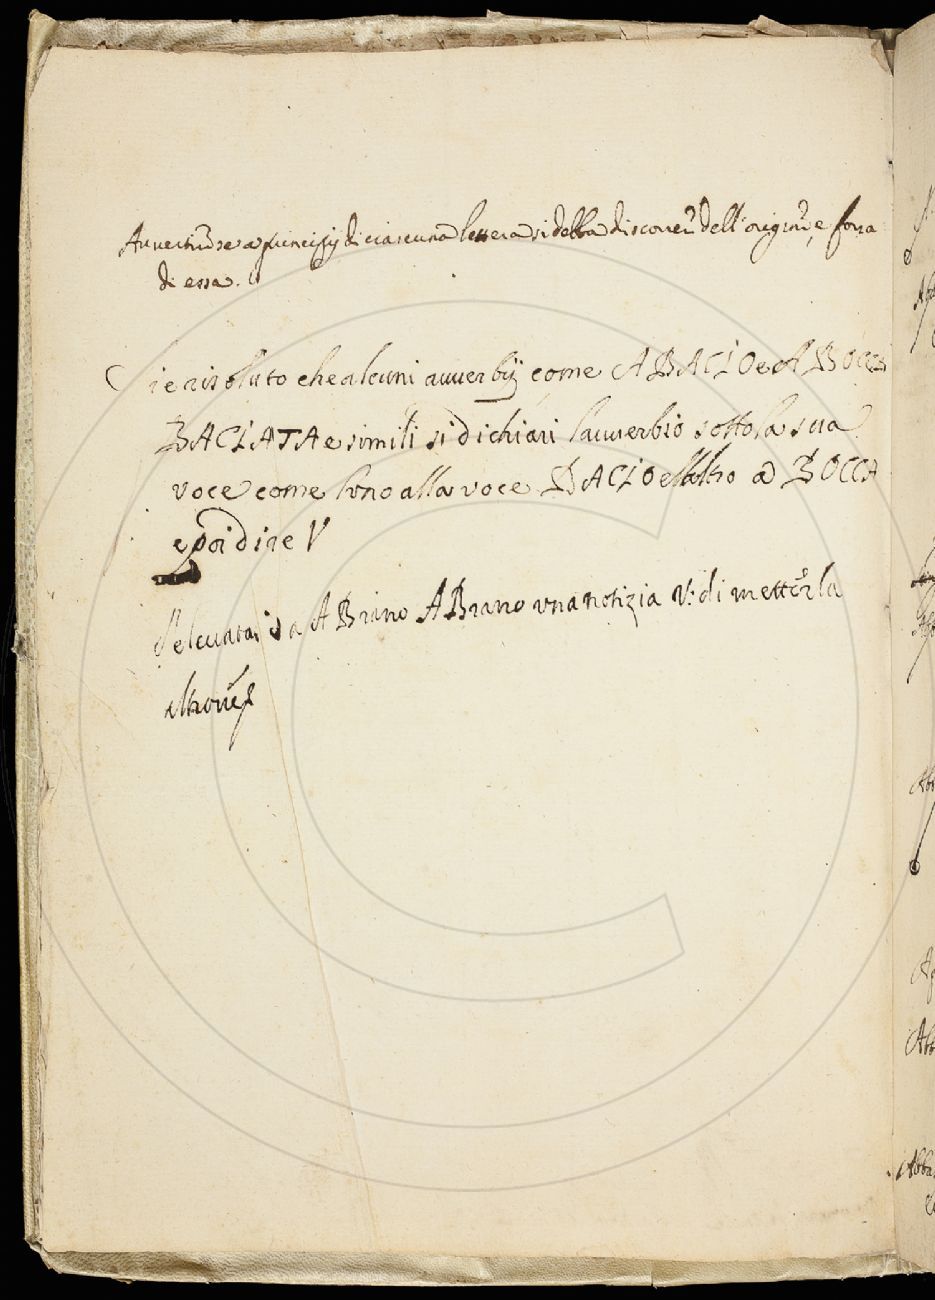 Avvertire se a principij di ciascuna lettera si debba discorrer dell'origine, e forza
di essa.
Si è risoluto che alcuni avverbij come A BACIO e A BOCCA
BACIATA e simili si dichiari l'avverbio sotto la sua
voce come l'vno alla voce BACIO e l'altro a BOCCA
e poi dire V
da A Brano A Brano vna notizia V: di metterla
altrove